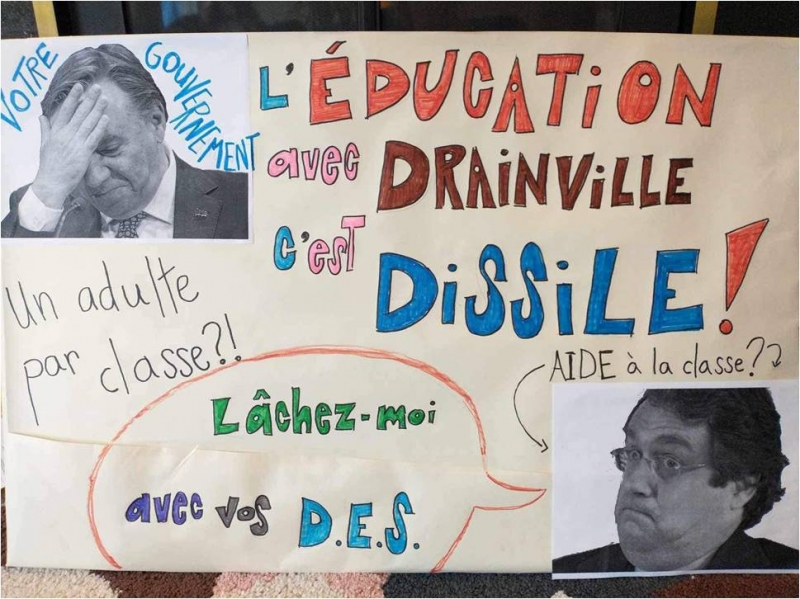 VOTRE GOUVERNEMENT
L'ÉDUCATION
avec DRAiNViLLE
c'esT DiSSiLE!
Un adulte
par classe?!
AIDE à la classe?
Lâchez-moi
avec vos D.E.S.